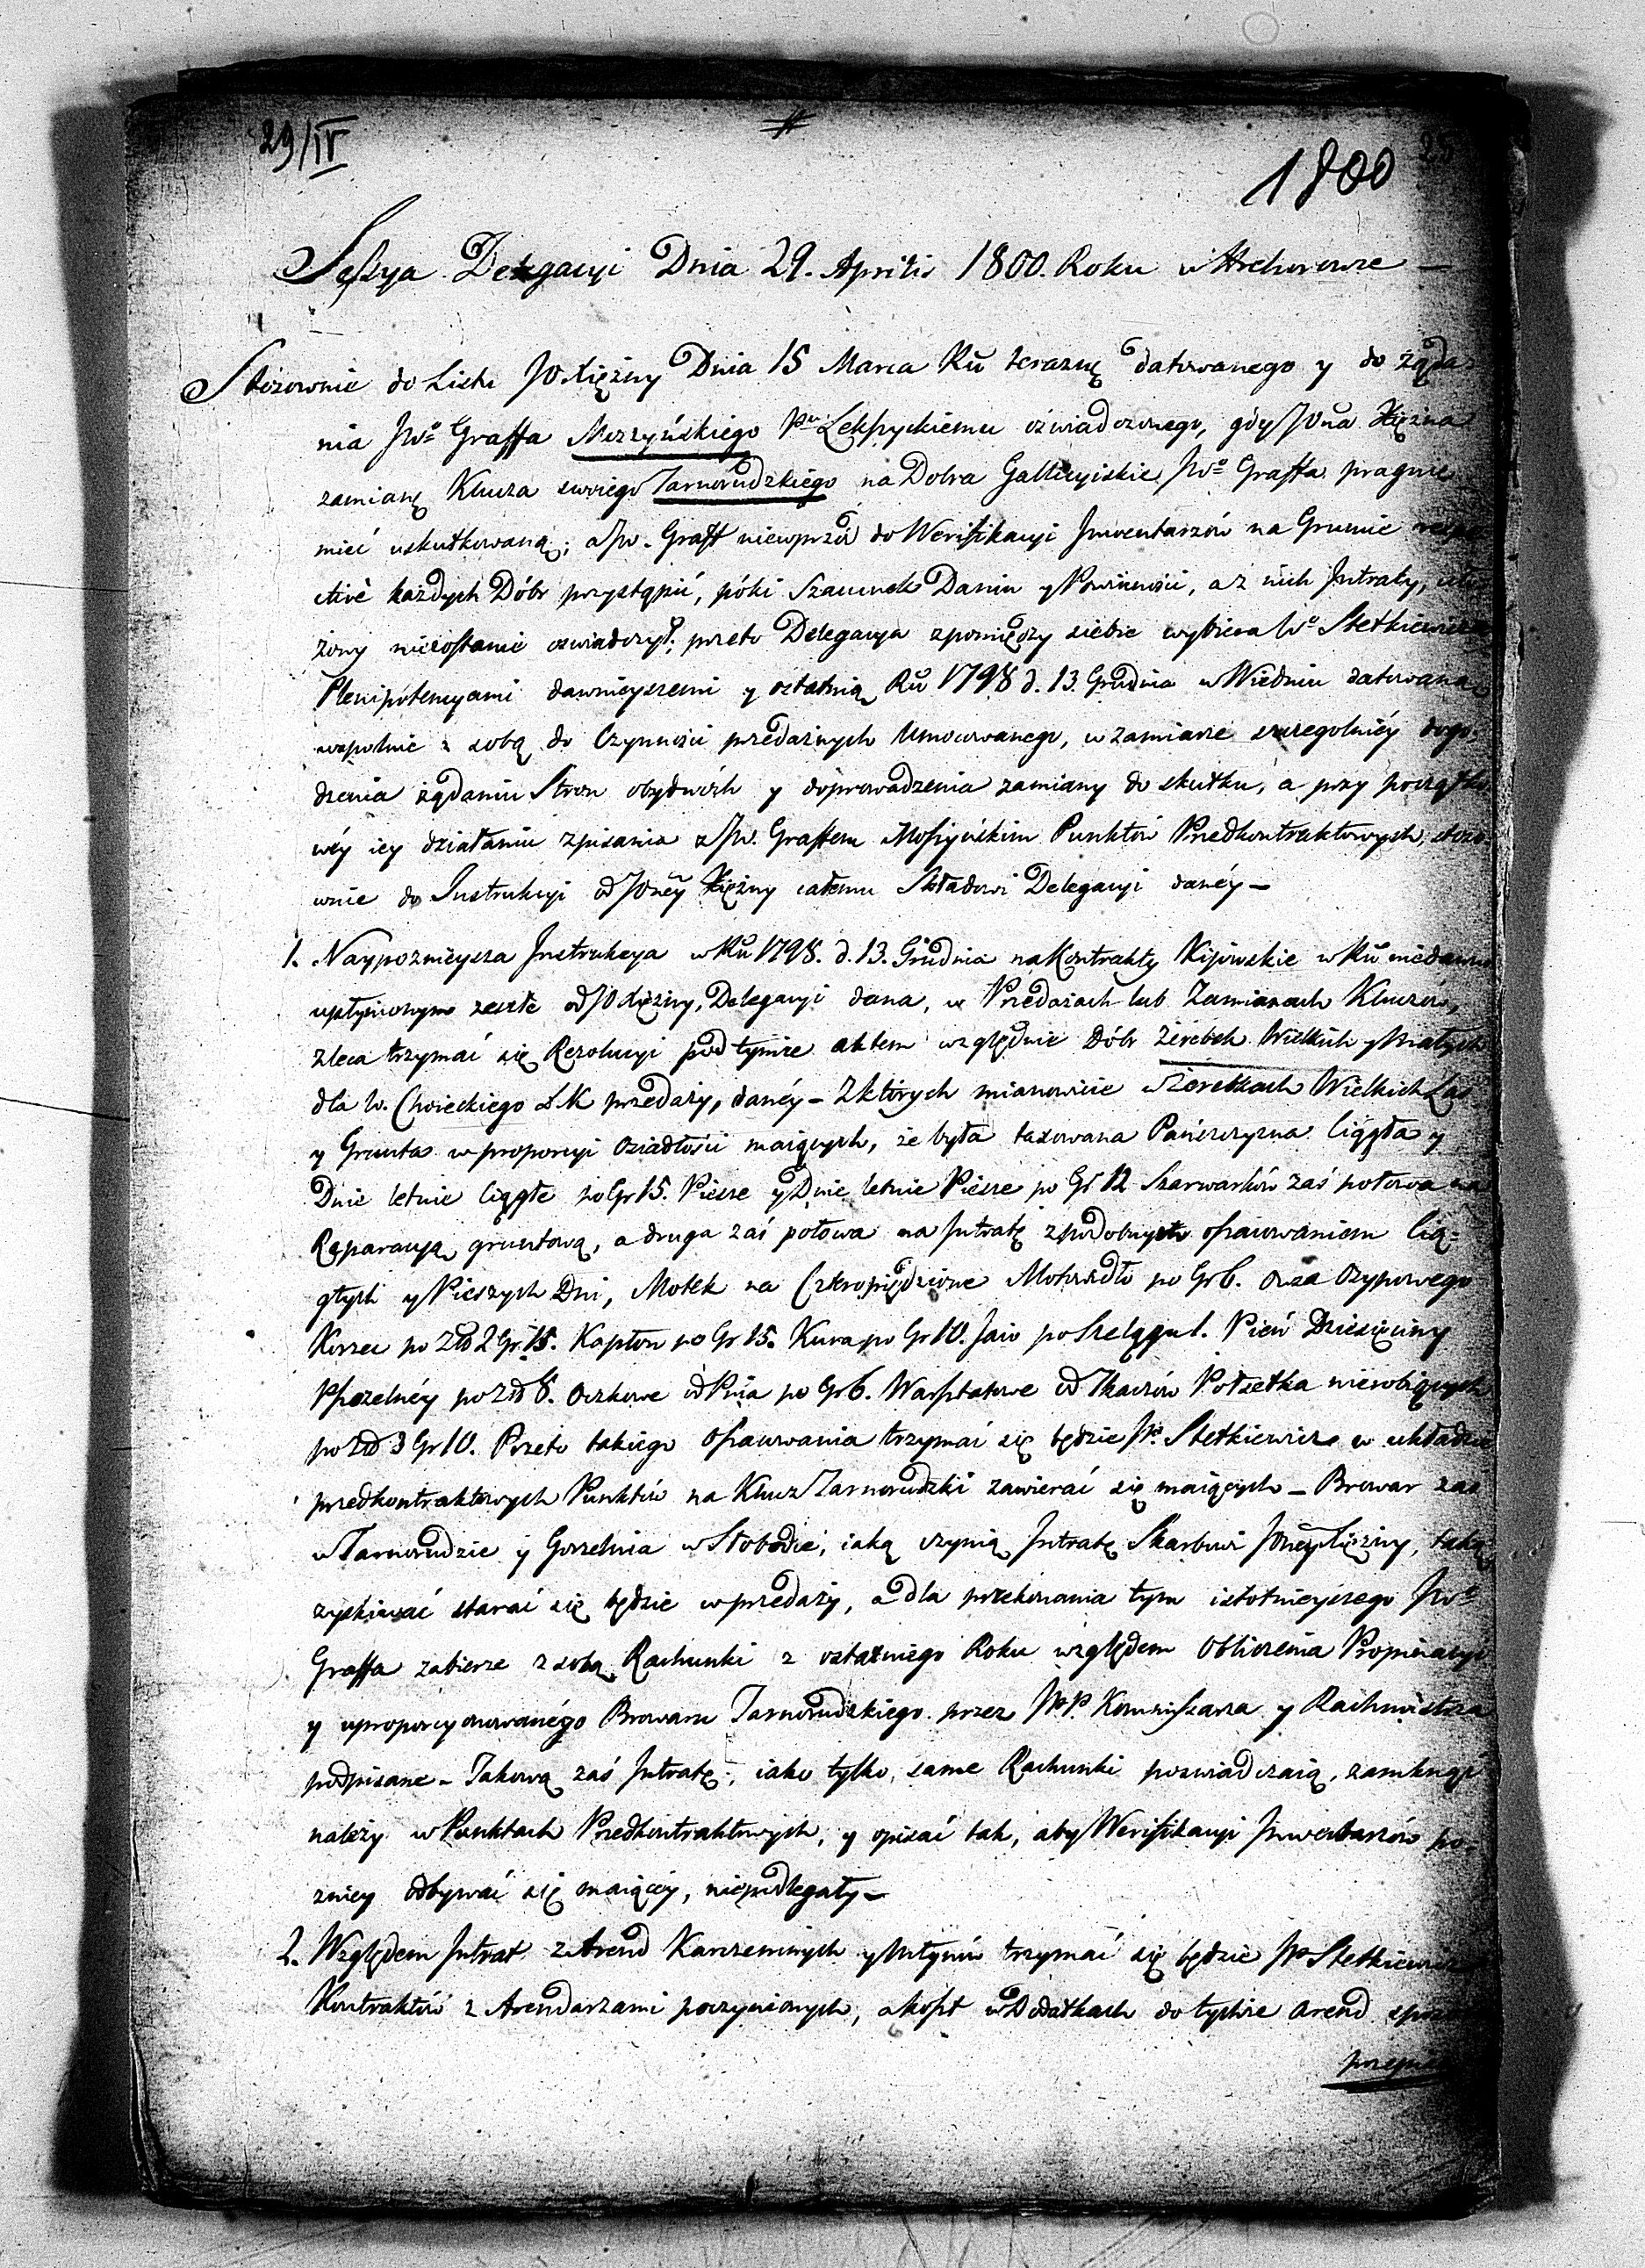 29/IV
#
1800
25
Seßya Delegacyi Dnia 29. Aprilis 1800. Roku w Strchorowce —
Stosownie do Listu JO Xiężny Dnia 15 Marca Ru teraznę datowanego y do żąda-
nia JWo Graffa Moszyńskiego Pu Lekszyckiemu oświadczonego, gdy JOna Xiężna
zamianę Klucza swoiego Tarnorudzkiego na Dobra Gallicyiskie JWo Graffa pragnie
mieć uskutkowaną; a JW. Graff niewprzód do Weryfikacyi Jnwentarzów na Gruncie respe
ctivè każdych Dóbr przystąpić, póki Szacunek Danin y Powinności, a z nich Jntraty, uło
żony niezostanie oswiadczył; przeto Delegacya zpomiędzy siebie wybiera Wo Stetkiewicza
Plenipotencyami dawnieyszemi y ostatnią Ru 1798 d. 13. Grudnia w Wiedniu datowaną
wspolnie z sobą do Czynności przedażnych Umocowanego, w zamiarze szczegolniéy dogo-
dzenia żądaniu Stron obydwóch y doprowadzenia zamiany do skutku, a przy początko
wéy iey działaniu zpisania z JW. Graffem Moszyńskim Punktów Przedkontraktowych, stoso-
wnie do Instrukcyi od JOnéy Xiężny całemu Składowi Delegacyi danéy —
1. Naypoznieysza Jnstrukcya w Ru 1798. d. 13. Grudnia na Kontrakty Kijowskie w Ru niedawno
upłynionym zeszłe od JO Xiężny, Delegacyi dana, w Przedażach lub Zamianach Kluczów,
zleca trzymać się Rezolucyi pod tymże aktem względnie Dóbr Żerebek Wielkich y Małych
dla W. Choieckiego Ł K przedaży, danéy – Z których mianowicie w Żerebkach Wielkich Las
y Grunta w proporcyi Osiadłości maiących, że była taxowana Pańszczyzna Ciągła y
Dnie letnie Ciągłe po Gr 15. Piesze y Dnie letnie Piesze po Gr 12 Szarwarków zaś połowa na
Reparacyą gruntową, a druga zaś połowa na Jntratę z podobnym oszacowaniem Cią-
głych y Pieszych Dni, Motek na Czteropiędziowe Motowidło po Gr 6. Owsa Czynszowego
Korzec po Złł 2 Gr. 15. Kapłon po Gr 15. Kura po Gr 10. Jaio po Szelągu 1. Pień Dziesięciny
Pszczelnéy po Złł 8. Oczkowe od Pnia po Gr 6. Warsztatowe od Tkaczów Połsetka nierobiących
po Złł 3 Gr 10. Przeto takiego Oszacowania trzymać się będzie JWo Stetkiewicz w układzie
przedkontraktowych Punktów na Klucz Tarnorudzki zawierać się maiących – Browar zaś
w Tarnorudzie y Gorzelnia w Słobodzie, iaką czynią Jntratę Skarbowi JOnéy Xiężny, taką
zyskiwać starać się będzie w przedaży, a dla przekonania tym istotnieyszego JWo
Graffa zabierze z sobą Rachunki z ostatniego Roku względem Obliczenia Propinacyi
y uproporcyonowanégo Browaru Tarnorudzkiego przez WP. Kommissarza y Rachmistrza
podpisane – Takową zaś Jntratę, iako tylko, same Rachunki poswiadczaią, zamknąć
należy w Punktach Przedkontraktowych, y opisać tak, aby Weryfikacyi Jnwentarzów po-
zniey odbywać się maiącéy, niepodlegały –
2. Względem Jntrat z Arend Karczemnych y Młynów trzymać się będzie WP Stetkiewicz
Kontraktów z Arendarzami poczynionych, a koszt w Dodatkach do tychże Arend